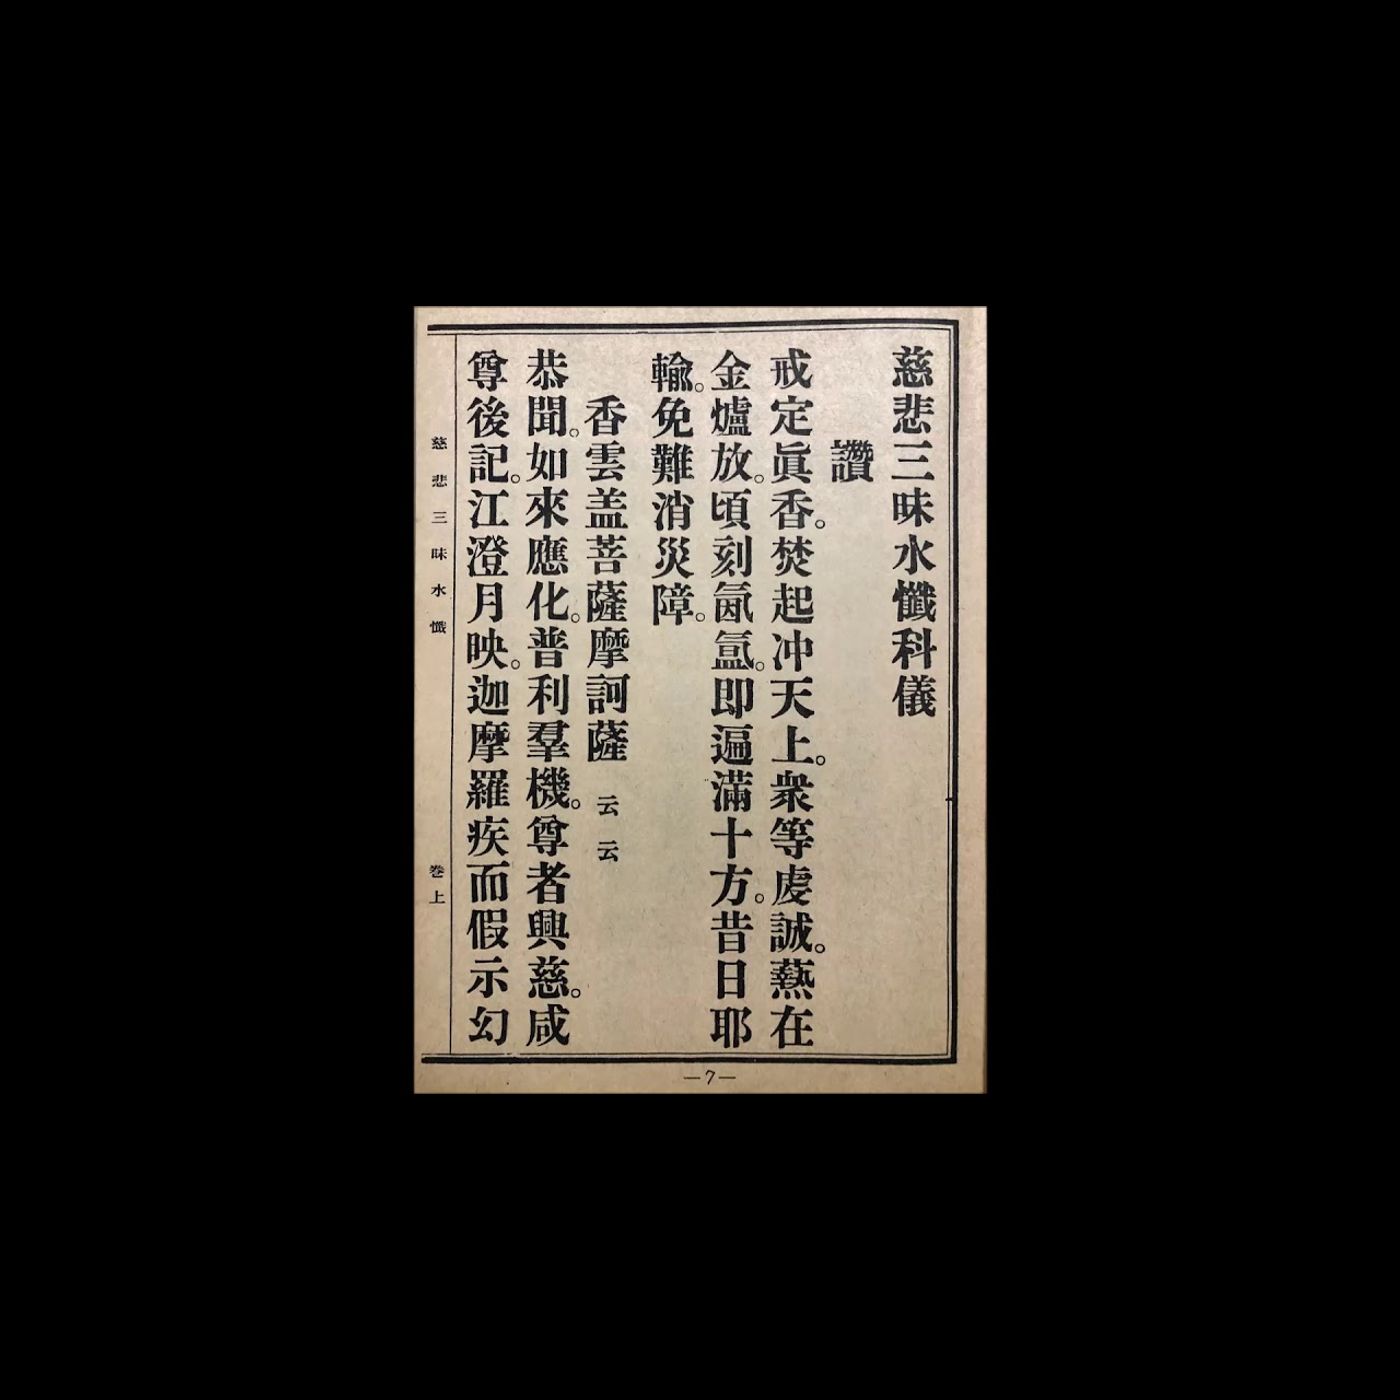 慈悲三昧水懺科儀
讚
戒定眞香。焚起冲天上。衆等虔誠。爇在
金爐放。頃刻氤氳。即遍滿十方。昔日耶
輸。免難消災障。
香雲盖菩薩摩訶薩 云云
恭聞。如來應化。普利羣機。尊者興慈。咸
尊後記。江澄月映。迦摩羅疾而假示幻
慈悲三昧水懺 卷上
—7—